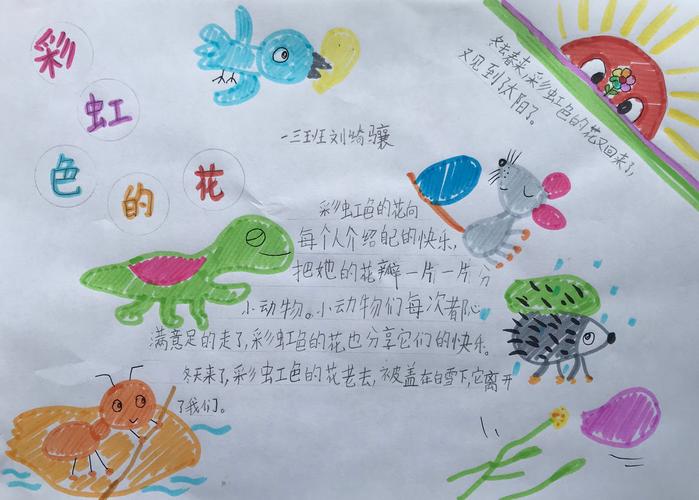 彩
虹
色
的
花
冬去春来,彩虹色的花又回来了,
又见到了太阳了。
一三班刘崎骧
彩虹色的花向
每个人介绍自己的快乐,
把她的花瓣一片一片分
小动物。小动物们每次都心
满意足的走了,彩虹色的花也分享它们的快乐。
冬天来了,彩虹色的花老去,被盖在白雪下,它离开
了我们。